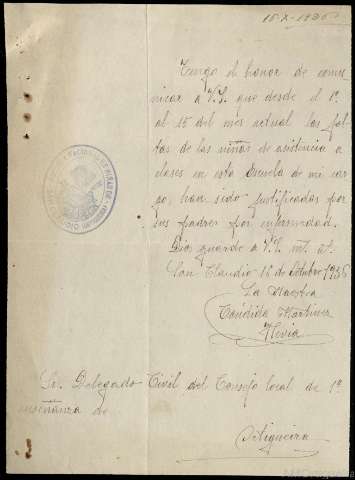 15-X-1936
Tengo el honor de comu-
nicar a V.S. que desde el 1º
al 15 del mes actual las fal-
tas de las niñas de asistencia a
clases en esta Escuela de mi car-
go, han sido justificadas por
sus padres por enfermedad.
Dios guarde a V.S. m. a.
San Claudio 16 de Octubre 1936
La Maestra
Cándida Martínez
Hevia
Sr. Delegado Civil del Consejo local de 1ª
enseñanza de
Sigueira